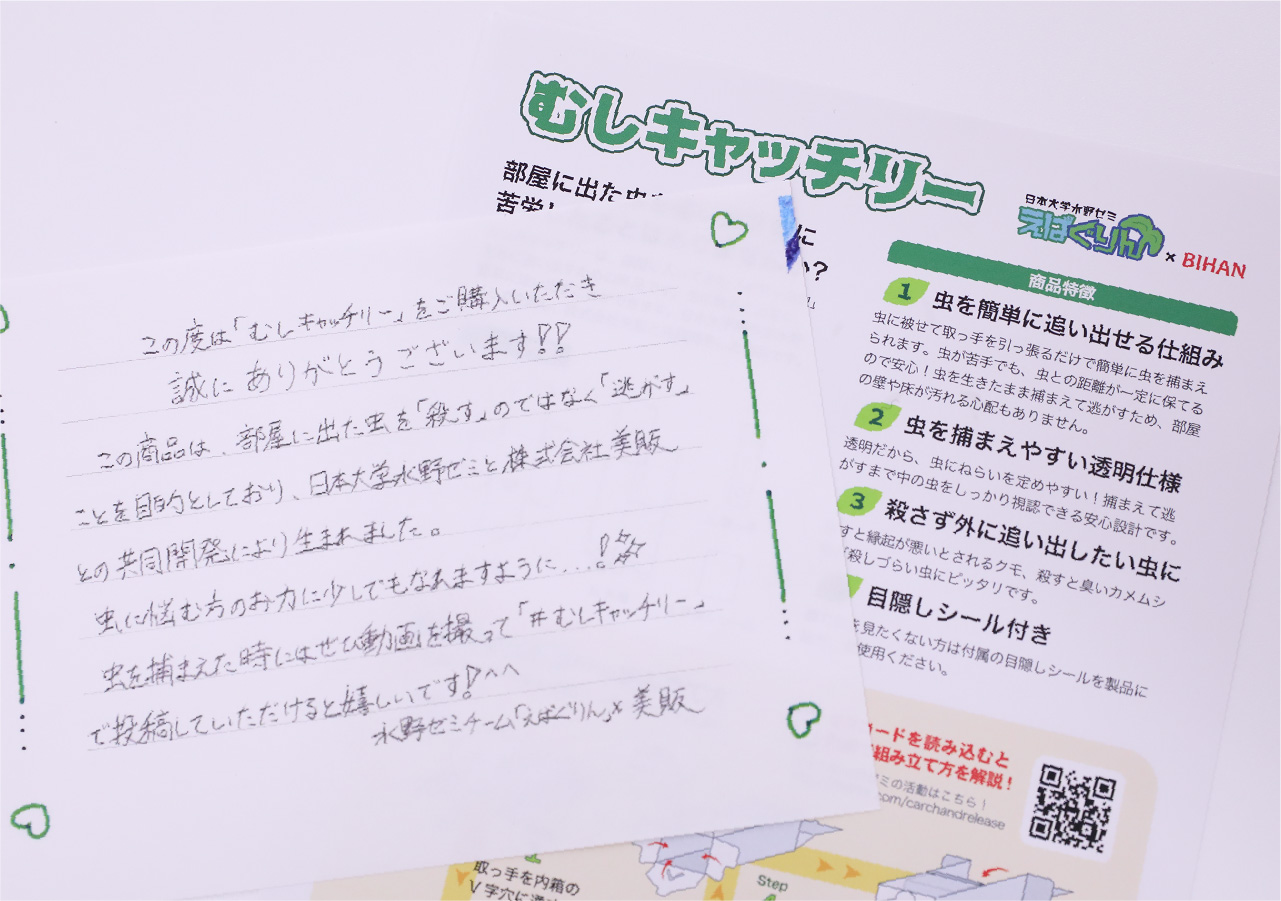 むしキャッチリー
部屋に出た虫
苦労
に
?
日本大学水野ゼミ
えばぐりん × BIHAN
商品特徴
1 虫を簡単に追い出せる仕組み
虫に被せて取っ手を引っ張るだけで簡単に虫を捕まえ
られます。虫が苦手でも、虫との距離が一定に保てる
ので安心!虫を生きたまま捕まえて逃がすため、部屋
の壁や床が汚れる心配もありません。
2 虫を捕まえやすい透明仕様
透明だから、虫にねらいを定めやすい!捕まえて逃
がすまで中の虫をしっかり視認できる安心設計です。
3 殺さず外に追い出したい虫に
すと縁起が悪いとされるクモ、殺すと臭いカメムシ
殺しづらい虫にピッタリです。
目隠しシール付き
を見たくない方は付属の目隠しシールを製品に
使用ください。
ードを読み込むと
組み立て方を解説!
ミの活動はこちら!
com/carchandrelease
1
取っ手を内箱の
V字穴に
Step
この度は「むしキャッチリー」をご購入いただき
誠にありがとうございます!!
この商品は、部屋に出た虫を「殺す」のではなく「逃がす」
ことを目的としており、日本大学水野ゼミと株式会社美販
との共同開発により生まれました。
虫に悩む方のお力に少しでもなれますように...!
虫を捕まえた時にはぜひ動画を撮って「#むしキャッチリー」
で投稿していただけると嬉しいです!^^
水野ゼミチーム「えばぐりん」× 美販